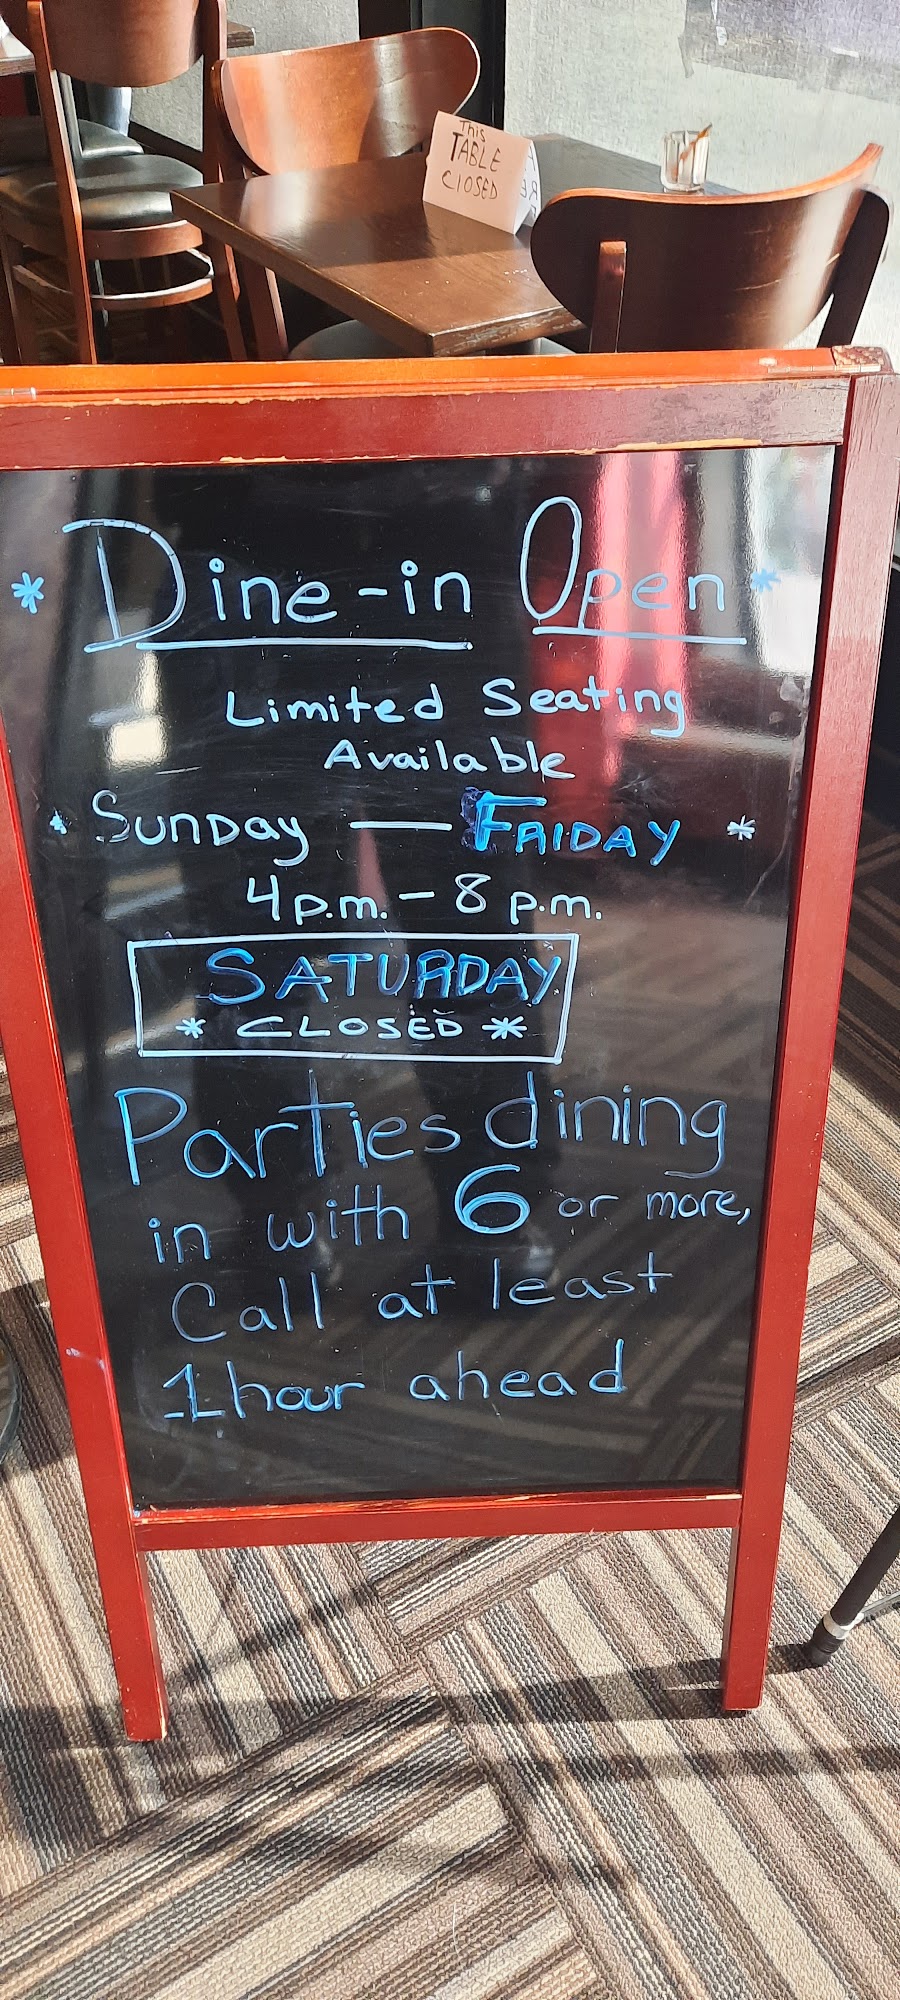 This
TABLE
CLOSED
* Dine-in Open *
Limited Seating
Available
* Sunday — FRIDAY *
4p.m. - 8 p.m.
SATURDAY
* CLOSED *
Parties dining
in with 6 or more,
Call at least
1 hour ahead